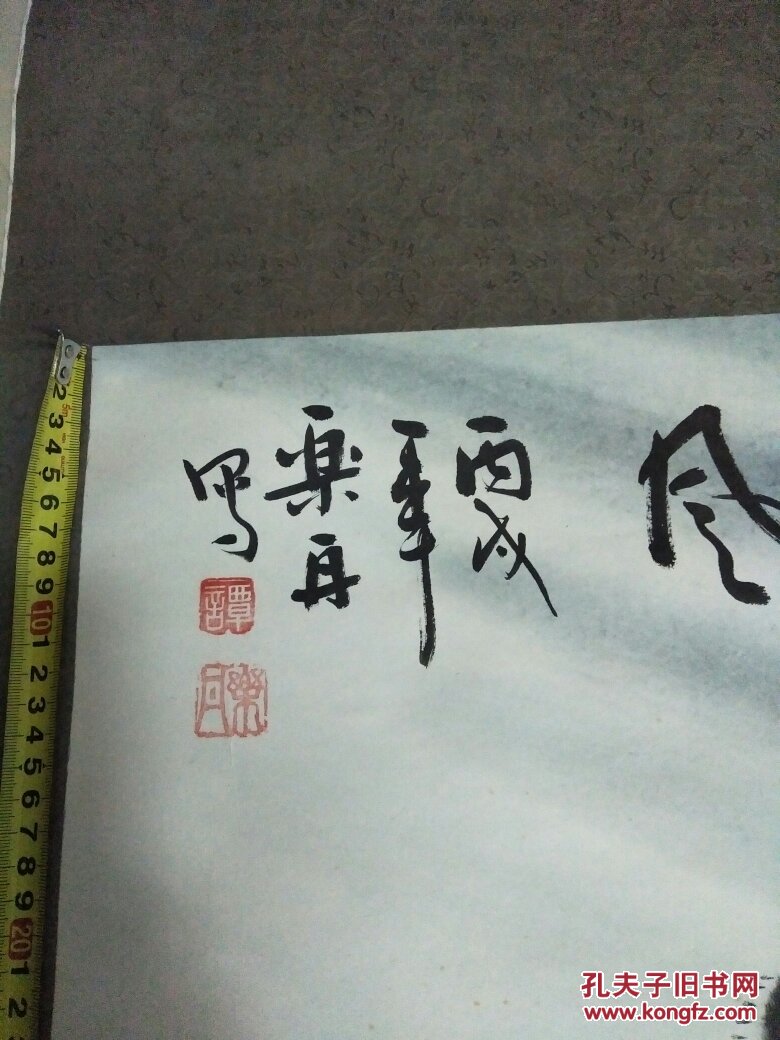 风
丙戌
年
乐丹
写
譚
樂丹
2 3 4 5 6 7 8 9 10 1 2 3 4 5 6 7 8 9 20 1 2
5m
孔夫子旧书网
www.kongfz.com